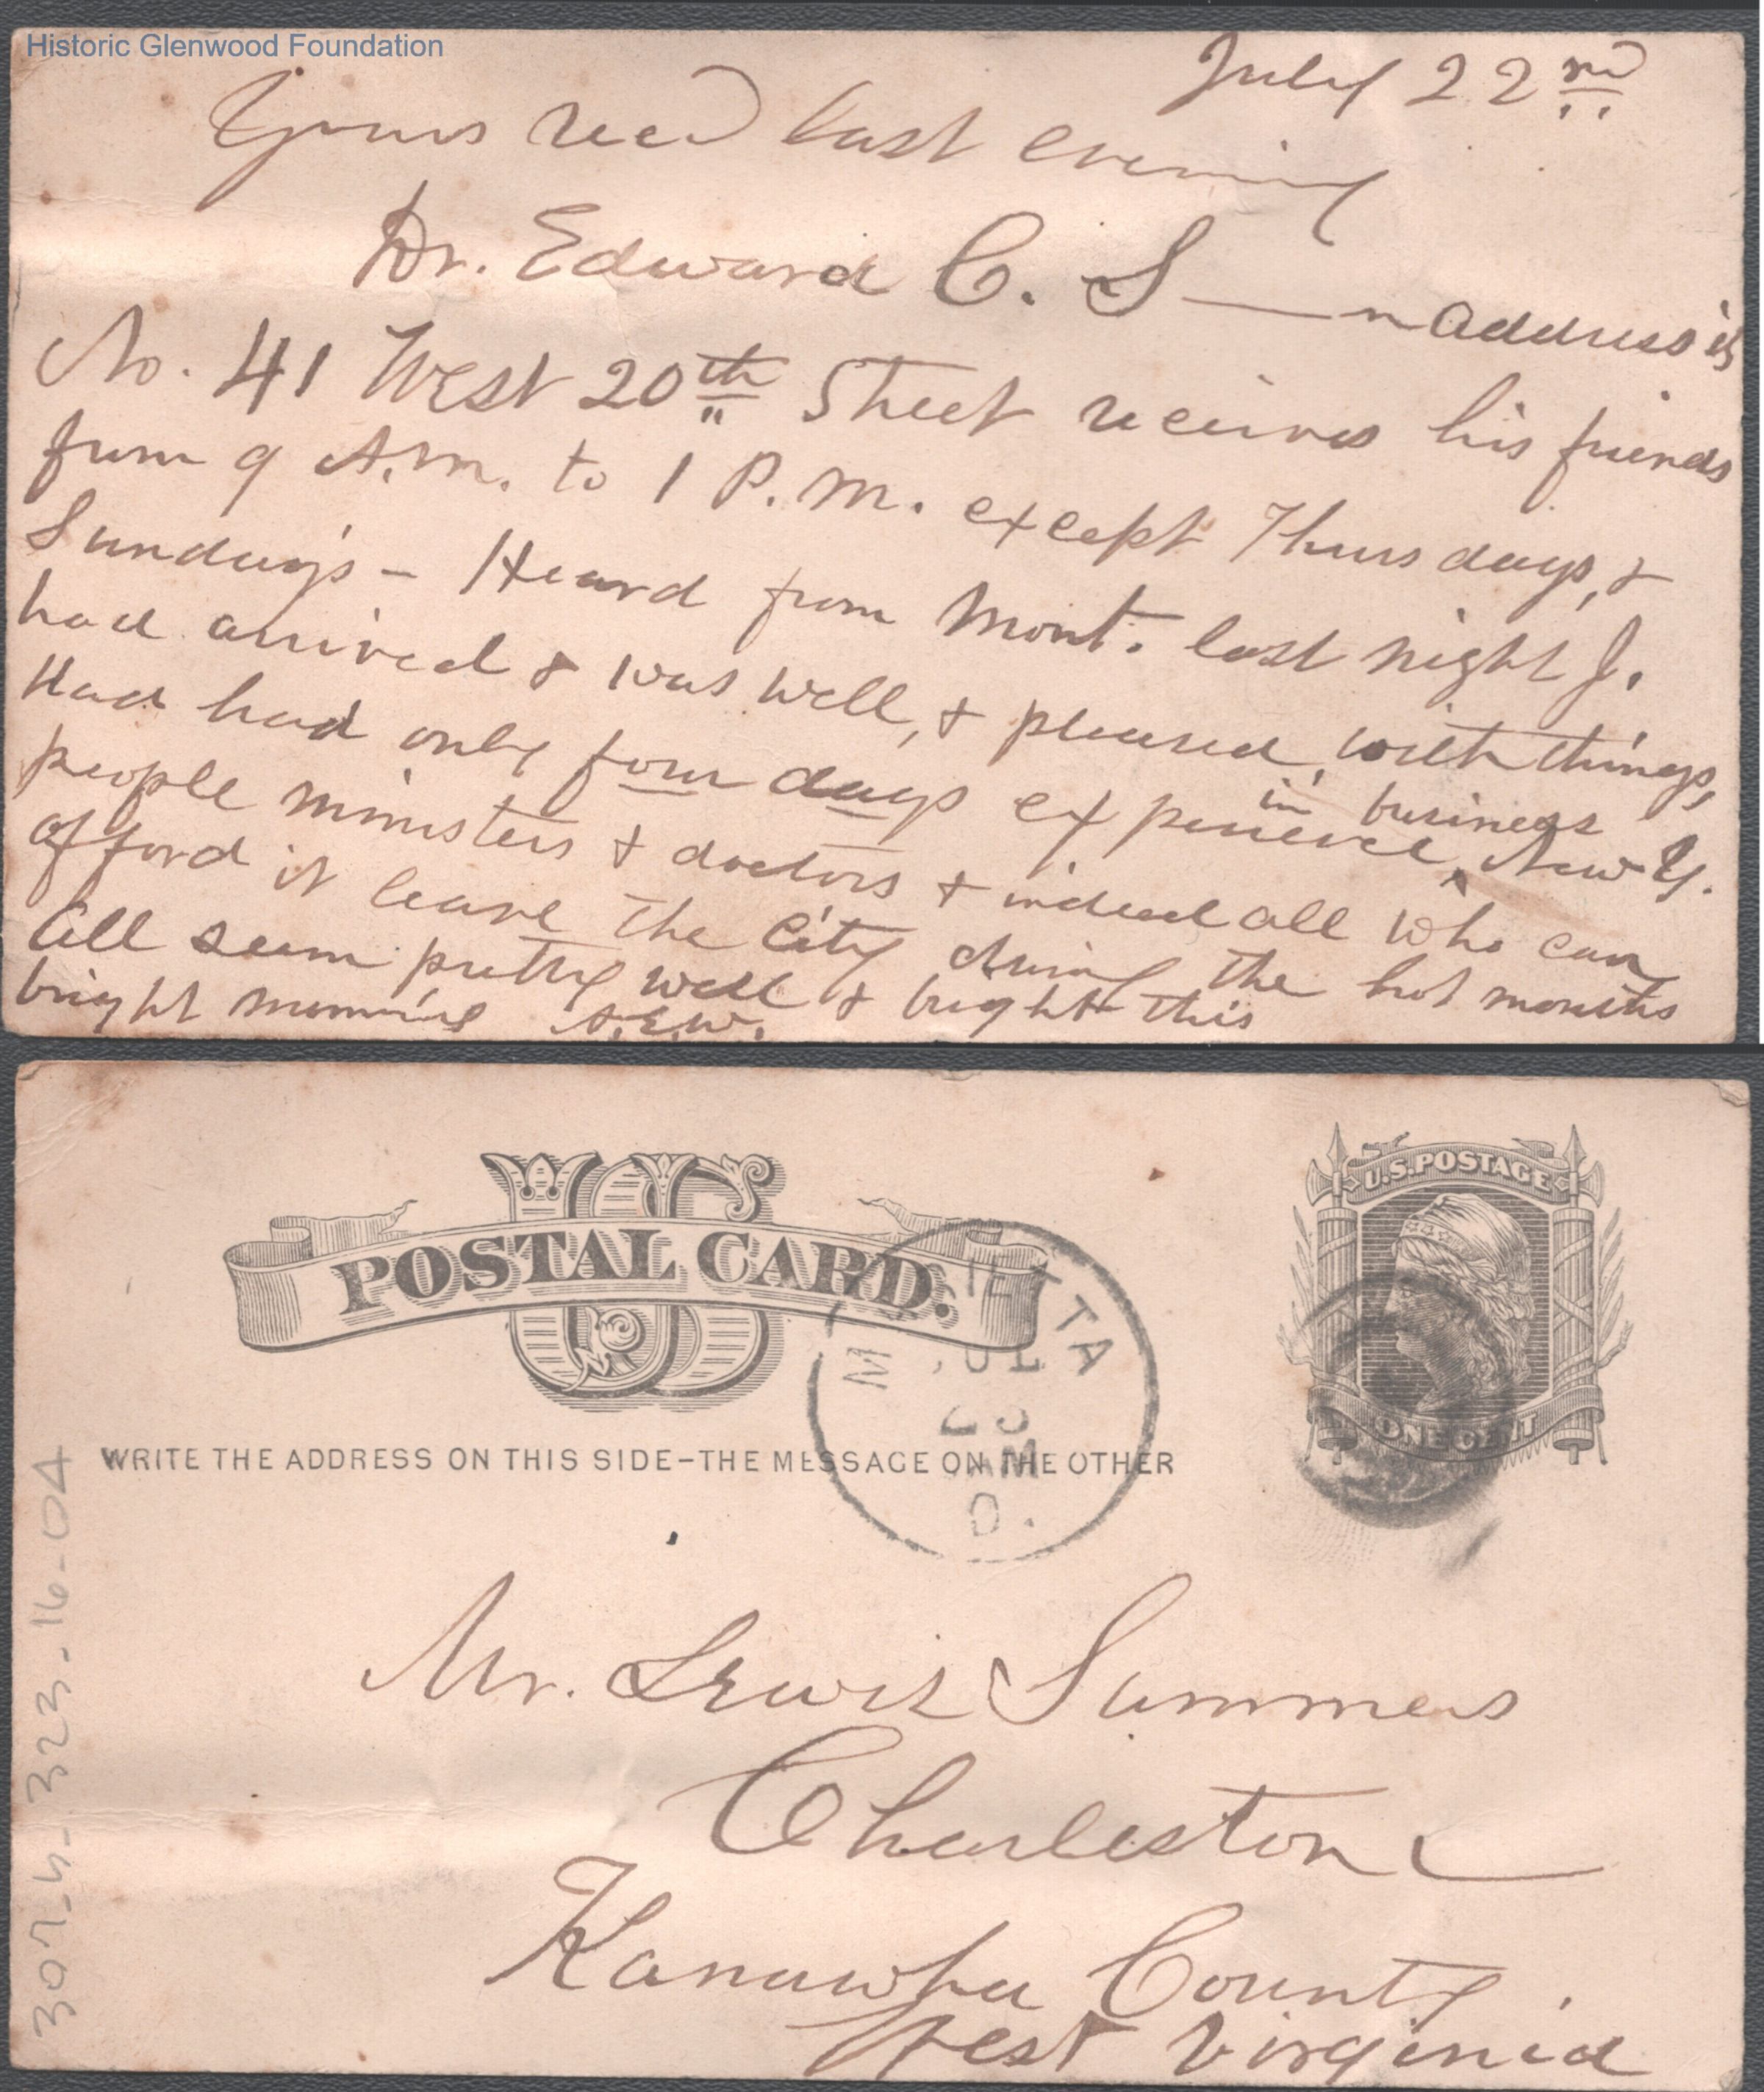 Historic Glenwood Foundation
July 22nd
Yours recd last evening
Dr. Edward C. S——n address is
No. 41 West 20th Street receives his friends
from 9 A.M. to 1 P.M. except Thursdays, &
Sunday's – Heard from Mont. last night J.
had arrived & was well, & pleased with things,
Had had only four days experience, in business New Y.
people ministers & doctors & indeed all who can
afford it leave the City during the hot months
All seem pretty well & bright this
bright morning A.E.W.
U.S. POSTAGE
US
POSTAL CARD.
ONE CENT
M IETTA
JUL
23
AM
O.
WRITE THE ADDRESS ON THIS SIDE–THE MESSAGE ON THE OTHER
Mr. Lewis Summers
Charleston
Kanawha County.
West Virginia
307-4-323-16-04